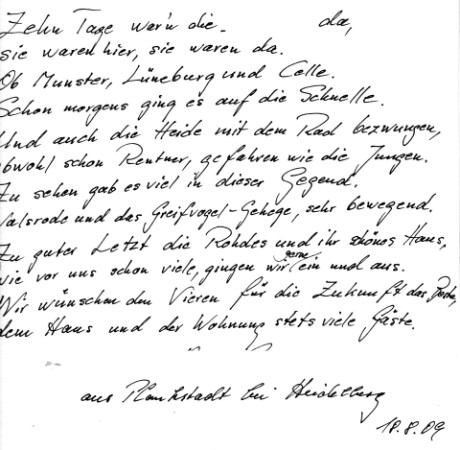 Zehn Tage war'n die da,
sie waren hier, sie waren da.
Ob Munster, Lüneburg und Celle.
Schon morgens ging es auf die Schnelle.
Und auch die Heide mit dem Rad bezwungen,
obwohl schon Rentner, gefahren wie die Jungen.
Zu sehen gab es viel in dieser Gegend.
Walsrode und das Greifvogel-Gehege, sehr bewegend.
Zu guter Letzt die Rohdes und ihr schönes Haus,
wie vor uns schon viele, gingen wir gerne ein und aus.
Wir wünschen den Vieren für die Zukunft das Beste,
dem Haus und der Wohnung stets viele Gäste.
aus Plankstadt bei Heidelberg
18.8.09